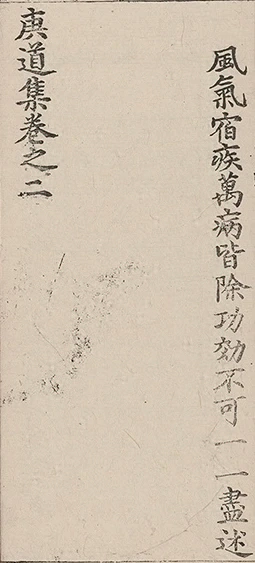 風氣宿疾萬病皆除功効不可一一盡述
庚道集卷之二